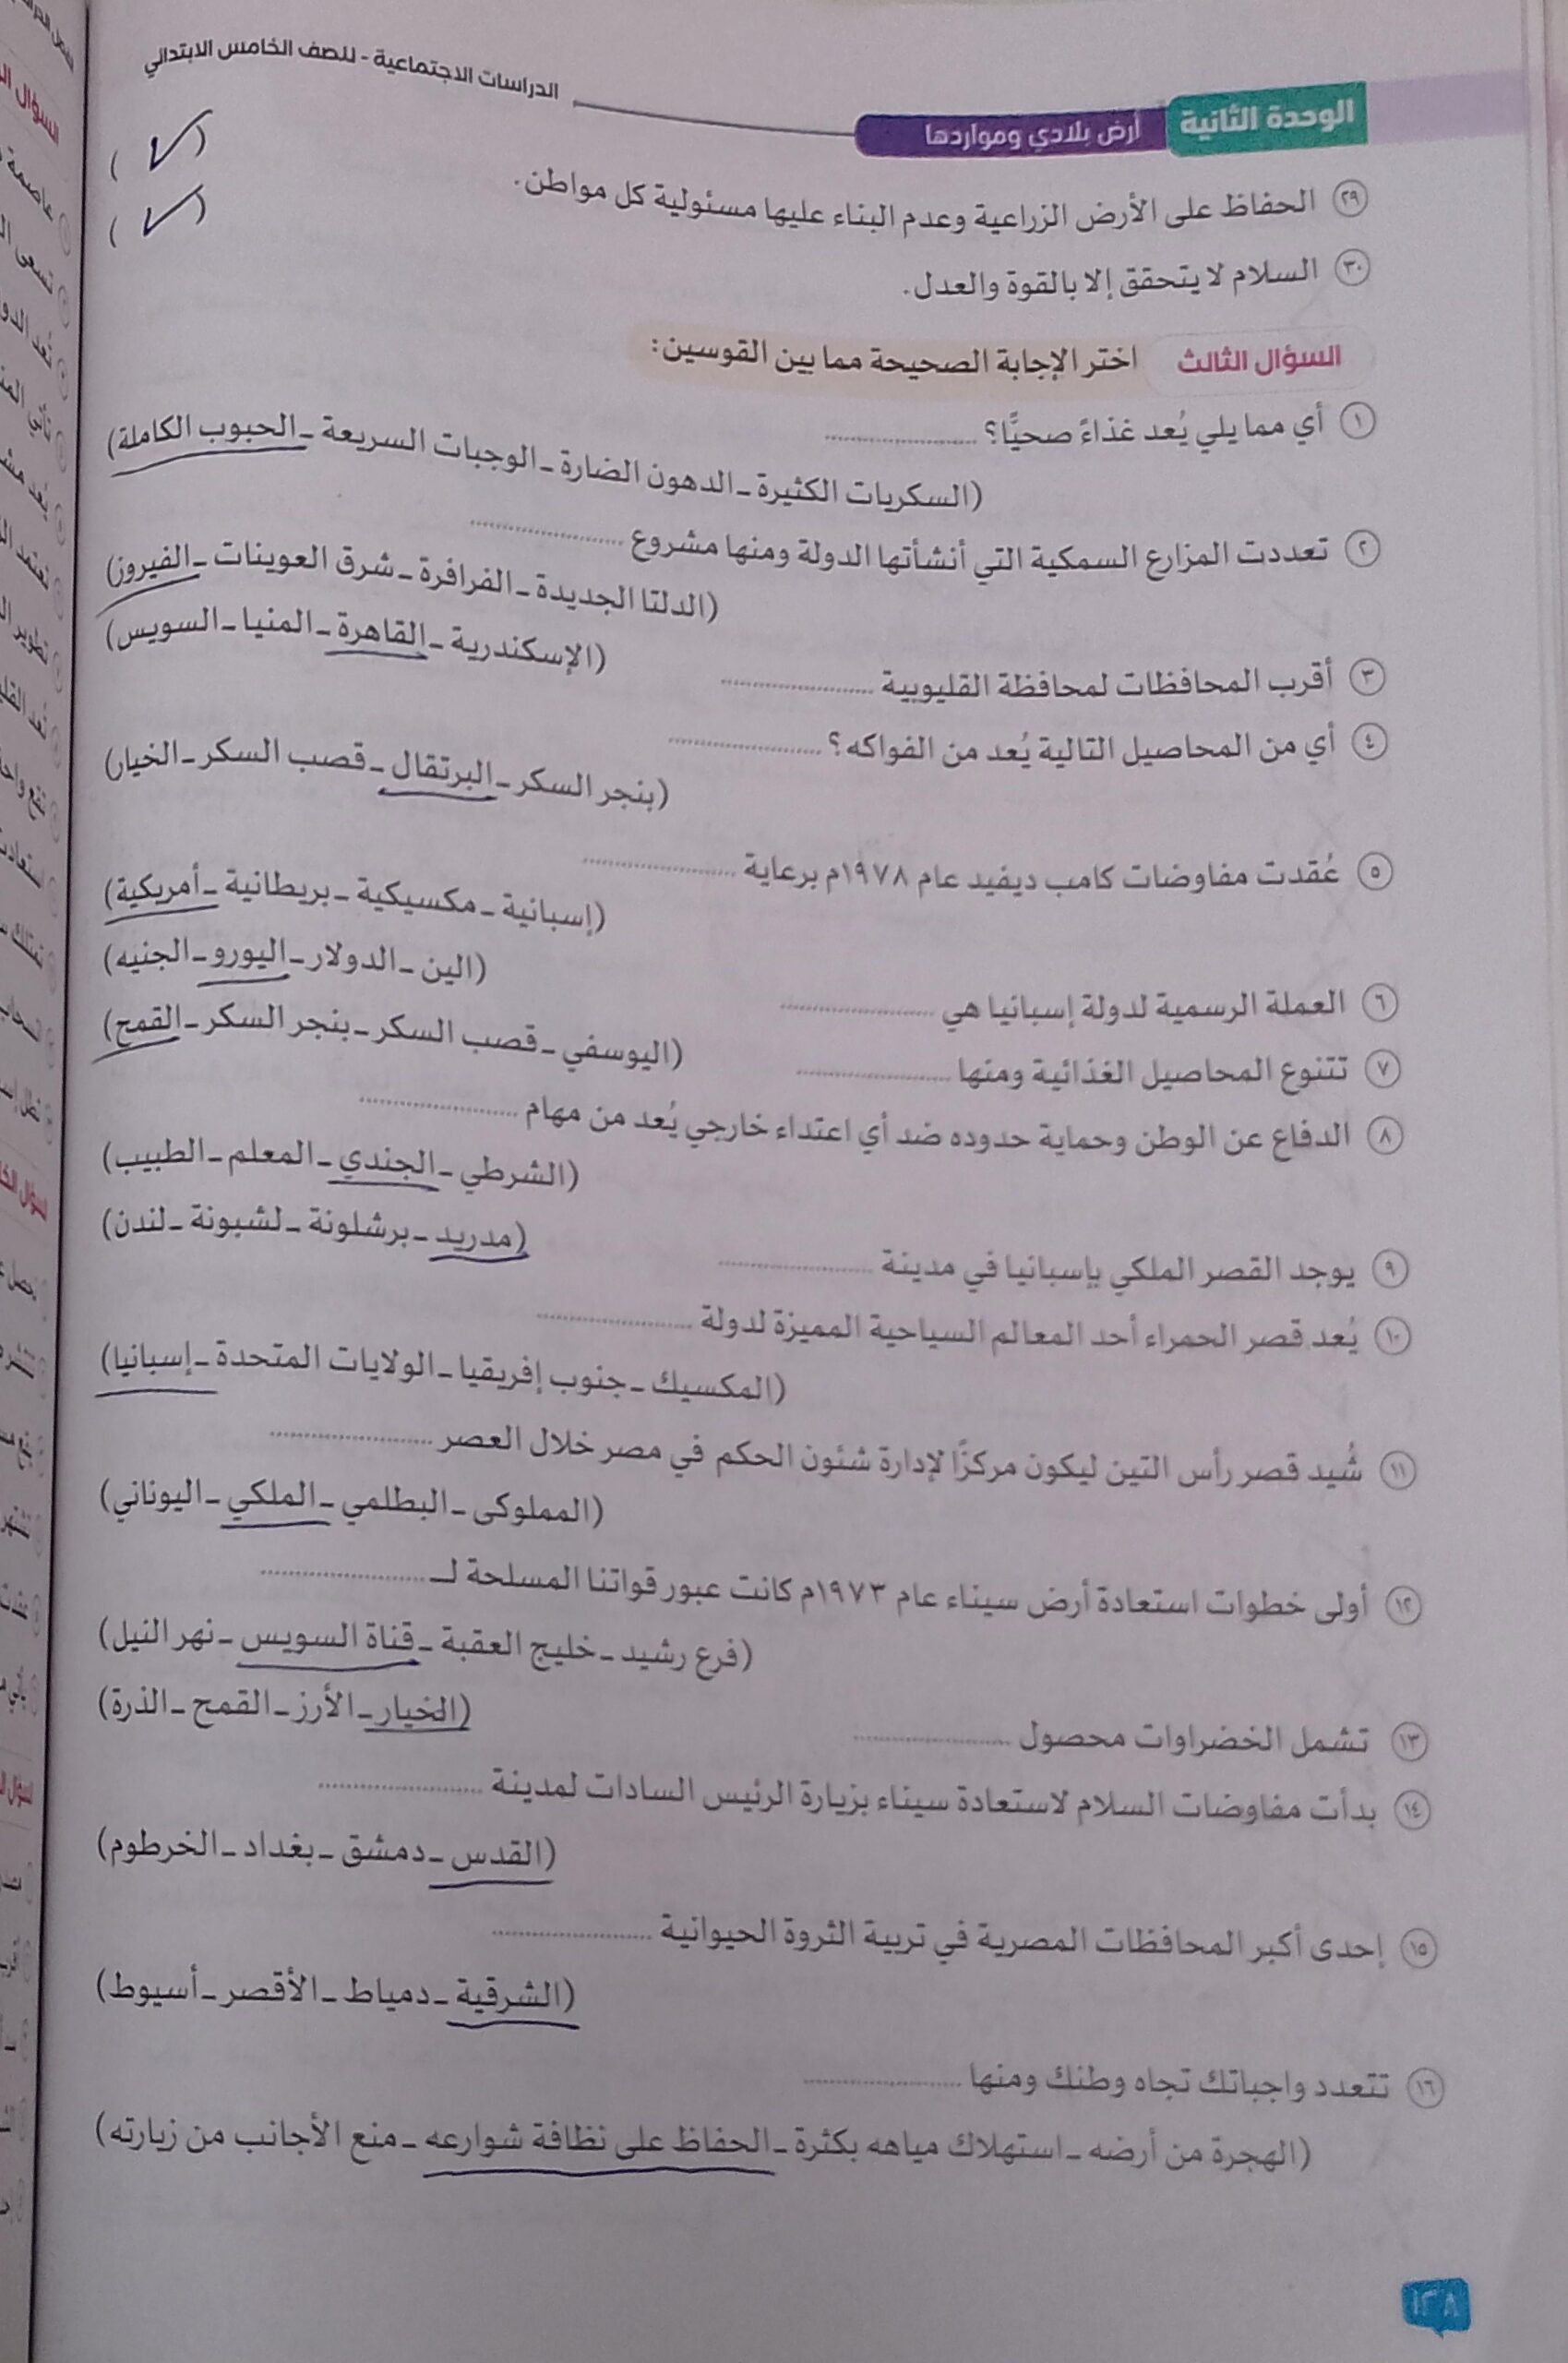 الدراسات الاجتماعية - للصف الخامس الابتدائي
الوحدة الثانية أرض بلادي ومواردها
٢٩ الحفاظ على الأرض الزراعية وعدم البناء عليها مسئولية كل مواطن. (✓)
٣٠ السلام لا يتحقق إلا بالقوة والعدل. (✓)
السؤال الثالث اختر الإجابة الصحيحة مما بين القوسين:
١ أي مما يلي يُعد غذاءً صحيًّا؟ ....................
(السكريات الكثيرة ـ الدهون الضارة ـ الوجبات السريعة ـ الحبوب الكاملة)
٢ تعددت المزارع السمكية التي أنشأتها الدولة ومنها مشروع ....................
(الدلتا الجديدة ـ الفرافرة ـ شرق العوينات ـ الفيروز)
٣ أقرب المحافظات لمحافظة القليوبية .................... (الإسكندرية ـ القاهرة ـ المنيا ـ السويس)
٤ أي من المحاصيل التالية يُعد من الفواكه؟ ....................
(بنجر السكر ـ البرتقال ـ قصب السكر ـ الخيار)
٥ عُقدت مفاوضات كامب ديفيد عام ١٩٧٨م برعاية ....................
(إسبانية ـ مكسيكية ـ بريطانية ـ أمريكية)
٦ العملة الرسمية لدولة إسبانيا هي .................... (الين ـ الدولار ـ اليورو ـ الجنيه)
٧ تتنوع المحاصيل الغذائية ومنها .................... (اليوسفي ـ قصب السكر ـ بنجر السكر ـ القمح)
٨ الدفاع عن الوطن وحماية حدوده ضد أي اعتداء خارجي يُعد من مهام ....................
(الشرطي ـ الجندي ـ المعلم ـ الطبيب)
٩ يوجد القصر الملكي بإسبانيا في مدينة .................... (مدريد ـ برشلونة ـ لشبونة ـ لندن)
١٠ يُعد قصر الحمراء أحد المعالم السياحية المميزة لدولة ....................
(المكسيك ـ جنوب إفريقيا ـ الولايات المتحدة ـ إسبانيا)
١١ شُيد قصر رأس التين ليكون مركزًا لإدارة شئون الحكم في مصر خلال العصر ....................
(المملوكى ـ البطلمي ـ الملكي ـ اليوناني)
١٢ أولى خطوات استعادة أرض سيناء عام ١٩٧٣م كانت عبور قواتنا المسلحة لـ ....................
(فرع رشيد ـ خليج العقبة ـ قناة السويس ـ نهر النيل)
١٣ تشمل الخضراوات محصول .................... (الخيار ـ الأرز ـ القمح ـ الذرة)
١٤ بدأت مفاوضات السلام لاستعادة سيناء بزيارة الرئيس السادات لمدينة ....................
(القدس ـ دمشق ـ بغداد ـ الخرطوم)
١٥ إحدى أكبر المحافظات المصرية في تربية الثروة الحيوانية ....................
(الشرقية ـ دمياط ـ الأقصر ـ أسيوط)
١٦ تتعدد واجباتك تجاه وطنك ومنها ....................
(الهجرة من أرضه ـ استهلاك مياهه بكثرة ـ الحفاظ على نظافة شوارعه ـ منع الأجانب من زيارته)
١٣٨